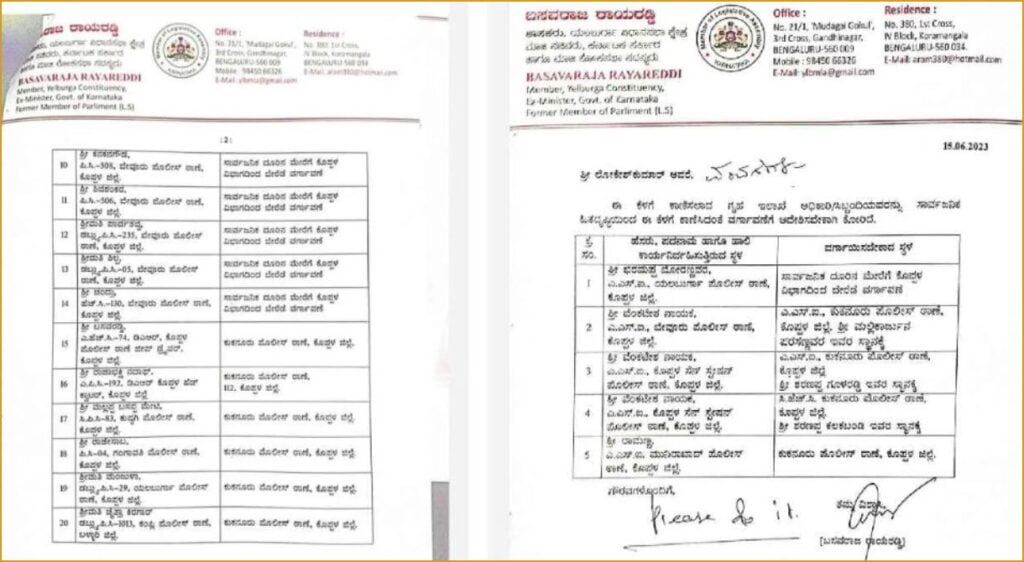 ಬಸವರಾಜ ರಾಯರಡ್ಡಿ
ಶಾಸಕರು, ಯಲಬುರ್ಗಾ ವಿಧಾನಸಭಾ ಕ್ಷೇತ್ರ
ಮಾಜಿ ಸಚಿವರು, ಕರ್ನಾಟಕ ಸರ್ಕಾರ
ಹಾಗೂ ಮಾಜಿ ಲೋಕಸಭಾ ಸದಸ್ಯರು
BASAVARAJA RAYAREDDI
Member, Yelburga Constituency,
Ex-Minister, Govt. of Karnataka
Former Member of Parliment (L.S)
Office :
No. 21/1, 'Mudagal Gokul',
3rd Cross, Gandhinagar,
BENGALURU-560 009
Mobile : 98450 66326
E-Mail: ylbmla@gmail.com
Residence :
No. 380, 1st Cross,
IV Block, Koramangala
BENGALURU-560 034.
E-Mail: aram380@hotmail.com
:2:
10 ಶ್ರೀ ಕನಕನಗೌಡ,
ಪಿ.ಸಿ.-308, ಬೇವೂರು ಪೊಲೀಸ್ ಠಾಣೆ,
ಕೊಪ್ಪಳ ಜಿಲ್ಲೆ.
ಸಾರ್ವಜನಿಕ ದೂರಿನ ಮೇರೆಗೆ ಕೊಪ್ಪಳ
ವಿಭಾಗದಿಂದ ಬೇರೆಡೆ ವರ್ಗಾವಣೆ
11 ಶ್ರೀ ಶಿವಶಂಕರ,
ಪಿ.ಸಿ.-506, ಬೇವೂರು ಪೊಲೀಸ್ ಠಾಣೆ,
ಕೊಪ್ಪಳ ಜಿಲ್ಲೆ.
ಸಾರ್ವಜನಿಕ ದೂರಿನ ಮೇರೆಗೆ ಕೊಪ್ಪಳ
ವಿಭಾಗದಿಂದ ಬೇರೆಡೆ ವರ್ಗಾವಣೆ
12 ಶ್ರೀಮತಿ ಪಾರ್ವತವ್ವ,
ಡಬ್ಲ್ಯುಪಿಸಿ-235, ಬೇವೂರು ಪೊಲೀಸ್
ಠಾಣೆ, ಕೊಪ್ಪಳ ಜಿಲ್ಲೆ.
ಸಾರ್ವಜನಿಕ ದೂರಿನ ಮೇರೆಗೆ ಕೊಪ್ಪಳ
ವಿಭಾಗದಿಂದ ಬೇರೆಡೆ ವರ್ಗಾವಣೆ
13 ಶ್ರೀಮತಿ ಶಿಲ್ಪ,
ಡಬ್ಲ್ಯುಪಿಸಿ-05, ಬೇವೂರು ಪೊಲೀಸ್
ಠಾಣೆ, ಕೊಪ್ಪಳ ಜಿಲ್ಲೆ.
ಸಾರ್ವಜನಿಕ ದೂರಿನ ಮೇರೆಗೆ ಕೊಪ್ಪಳ
ವಿಭಾಗದಿಂದ ಬೇರೆಡೆ ವರ್ಗಾವಣೆ
14 ಶ್ರೀ ಚಂದ್ರು,
ಹೆಚ್.ಸಿ.-130, ಬೇವೂರು ಪೊಲೀಸ್ ಠಾಣೆ,
ಕೊಪ್ಪಳ ಜಿಲ್ಲೆ.
ಸಾರ್ವಜನಿಕ ದೂರಿನ ಮೇರೆಗೆ ಕೊಪ್ಪಳ
ವಿಭಾಗದಿಂದ ಬೇರೆಡೆ ವರ್ಗಾವಣೆ
15 ಶ್ರೀ ಬಸವರಡ್ಡಿ,
ಎ.ಹೆಚ್.ಸಿ-74, ಡಿಎಆರ್, ಕೊಪ್ಪಳ
ಪೊಲೀಸ್ ಠಾಣೆ ಜೀಪ್ ಡ್ರೈವರ್,
ಕೊಪ್ಪಳ ಜಿಲ್ಲೆ.
ಕುಕನೂರು ಪೊಲೀಸ್ ಠಾಣೆ, ಕೊಪ್ಪಳ ಜಿಲ್ಲೆ.
16 ಶ್ರೀ ರಾಜಾಭಕ್ಷಿ ನದಾಫ್,
ಎ.ಪಿ.ಸಿ-192, ಡಿಎಆರ್ ಕೊಪ್ಪಳ ಹೆಡ್
ಕ್ವಾಟರ್, ಕೊಪ್ಪಳ ಜಿಲ್ಲೆ
ಕುಕನೂರು ಪೊಲೀಸ್ ಠಾಣೆ,
112, ಕೊಪ್ಪಳ ಜಿಲ್ಲೆ.
17 ಶ್ರೀ ಮಲ್ಲಪ್ಪ ಬಸಪ್ಪ ಮೇಟಿ,
ಸಿ.ಪಿ.ಸಿ-83, ಕುಷ್ಟಗಿ ಪೊಲೀಸ್ ಠಾಣೆ,
ಕೊಪ್ಪಳ ಜಿಲ್ಲೆ.
ಕುಕನೂರು ಪೊಲೀಸ್ ಠಾಣೆ, ಕೊಪ್ಪಳ ಜಿಲ್ಲೆ.
18 ಶ್ರೀ ರಾಜೇಸಾಬ,
ಪಿ.ಸಿ-04, ಗಂಗಾವತಿ ಪೊಲೀಸ್ ಠಾಣೆ,
ಕೊಪ್ಪಳ ಜಿಲ್ಲೆ.
ಕುಕನೂರು ಪೊಲೀಸ್ ಠಾಣೆ, ಕೊಪ್ಪಳ ಜಿಲ್ಲೆ.
19 ಶ್ರೀಮತಿ ಮಂಜುಳಾ,
ಡಬ್ಲ್ಯುಪಿಸಿ-29, ಯಲಬುರ್ಗಾ ಪೊಲೀಸ್
ಠಾಣೆ, ಕೊಪ್ಪಳ ಜಿಲ್ಲೆ.
ಕುಕನೂರು ಪೊಲೀಸ್ ಠಾಣೆ, ಕೊಪ್ಪಳ ಜಿಲ್ಲೆ.
20 ಶ್ರೀಮತಿ ಚೈತ್ರಾ
ಡಬ್ಲ್ಯುಪಿಸಿ-1013, ಕಂಪ್ಲಿ ಪೊಲೀಸ್ ಠಾಣೆ,
ಬಳ್ಳಾರಿ ಜಿಲ್ಲೆ.
ಕುಕನೂರು ಪೊಲೀಸ್ ಠಾಣೆ, ಕೊಪ್ಪಳ ಜಿಲ್ಲೆ.
ಬಸವರಾಜ ರಾಯರಡ್ಡಿ
ಶಾಸಕರು, ಯಲಬುರ್ಗಾ ವಿಧಾನಸಭಾ ಕ್ಷೇತ್ರ
ಮಾಜಿ ಸಚಿವರು, ಕರ್ನಾಟಕ ಸರ್ಕಾರ
ಹಾಗೂ ಮಾಜಿ ಲೋಕಸಭಾ ಸದಸ್ಯರು
BASAVARAJA RAYAREDDI
Member, Yelburga Constituency,
Ex-Minister, Govt. of Karnataka
Former Member of Parliment (L.S)
Member of Legislative Assembly
KARNATAKA
Office :
No. 21/1, 'Mudagal Gokul',
3rd Cross, Gandhinagar,
BENGALURU-560 009
Mobile : 98450 66326
E-Mail: ylbmla@gmail.com
Residence :
No. 380, 1st Cross,
IV Block, Koramangala
BENGALURU-560 034.
E-Mail: aram380@hotmail.com
15.06.2023
ಶ್ರೀ ಲೋಕೇಶ್‌ಕುಮಾರ್ ಅವರೆ,
ಈ ಕೆಳಗೆ ಕಾಣಿಸಲಾದ ಗೃಹ ಇಲಾಖೆ ಅಧಿಕಾರಿ/ಸಿಬ್ಬಂದಿಯವರನ್ನು ಸಾರ್ವಜನಿಕ
ಹಿತದೃಷ್ಟಿಯಿಂದ ಈ ಕೆಳಗೆ ಕಾಣಿಸಿದಂತೆ ವರ್ಗಾವಣೆಗೆ ಆದೇಶಿಸಬೇಕಾಗಿ ಕೋರಿದೆ.
ಕ್ರ. ಸಂ.
ಹೆಸರು, ಪದನಾಮ ಹಾಗೂ ಹಾಲಿ
ಕಾರ್ಯನಿರ್ವಹಿಸುತ್ತಿರುವ ಸ್ಥಳ
ವರ್ಗಾಯಿಸಬೇಕಾದ ಸ್ಥಳ
1 ಶ್ರೀ ಭರಮಪ್ಪ ಬೋರಣ್ಣವರ,
ಎ.ಎಸ್.ಐ, ಯಲಬುರ್ಗಾ ಪೊಲೀಸ್ ಠಾಣೆ,
ಕೊಪ್ಪಳ ಜಿಲ್ಲೆ.
ಸಾರ್ವಜನಿಕ ದೂರಿನ ಮೇರೆಗೆ ಕೊಪ್ಪಳ
ವಿಭಾಗದಿಂದ ಬೇರೆಡೆ ವರ್ಗಾವಣೆ
2 ಶ್ರೀ ವೆಂಕಟೇಶ ನಾಯಕ,
ಎ.ಎಸ್.ಐ., ಬೇವೂರು ಪೊಲೀಸ್ ಠಾಣೆ,
ಕೊಪ್ಪಳ ಜಿಲ್ಲೆ.
ಎ.ಎಸ್.ಐ., ಕುಕನೂರು ಪೊಲೀಸ್ ಠಾಣೆ,
ಕೊಪ್ಪಳ ಜಿಲ್ಲೆ. ಶ್ರೀ ಮಲ್ಲಿಕಾರ್ಜುನ
ಪರಸಣ್ಣವರ ಇವರ ಸ್ಥಾನಕ್ಕೆ
3 ಶ್ರೀ ವೆಂಕಟೇಶ ನಾಯಕ,
ಎ.ಎಸ್.ಐ., ಕೊಪ್ಪಳ ಸೆನ್ ಸ್ಟೇಷನ್
ಪೊಲೀಸ್ ಠಾಣೆ, ಕೊಪ್ಪಳ ಜಿಲ್ಲೆ.
ಎ.ಎಸ್.ಐ., ಕುಕನೂರು ಪೊಲೀಸ್ ಠಾಣೆ,
ಕೊಪ್ಪಳ ಜಿಲ್ಲೆ
ಶ್ರೀ ಶರಣಪ್ಪ ಗೂಳರಡ್ಡಿ ಇವರ ಸ್ಥಾನಕ್ಕೆ
4 ಶ್ರೀ ವೆಂಕಟೇಶ ನಾಯಕ,
ಎ.ಎಸ್.ಐ., ಕೊಪ್ಪಳ ಸೆನ್ ಸ್ಟೇಷನ್
ಪೊಲೀಸ್ ಠಾಣೆ, ಕೊಪ್ಪಳ ಜಿಲ್ಲೆ.
ಸಿ.ಹೆಚ್.ಸಿ, ಕುಕನೂರು ಪೊಲೀಸ್ ಠಾಣೆ,
ಕೊಪ್ಪಳ ಜಿಲ್ಲೆ.
ಶ್ರೀ ಶರಣಪ್ಪ ಕಲಕಬಂಡಿ ಇವರ ಸ್ಥಾನಕ್ಕೆ
5 ಶ್ರೀ ರಾಮಣ್ಣ,
ಎ.ಎಸ್.ಐ ಮುನಿರಾಬಾದ್ ಪೊಲೀಸ್
ಠಾಣೆ, ಕೊಪ್ಪಳ ಜಿಲ್ಲೆ.
ಕುಕನೂರು ಪೊಲೀಸ್ ಠಾಣೆ, ಕೊಪ್ಪಳ ಜಿಲ್ಲೆ.
ಗೌರವಗಳೊಂದಿಗೆ,
Please do it.
ತಮ್ಮ ವಿಶ್ವಾಸಿ,
[ಬಸವರಾಜ ರಾಯರಡ್ಡಿ]